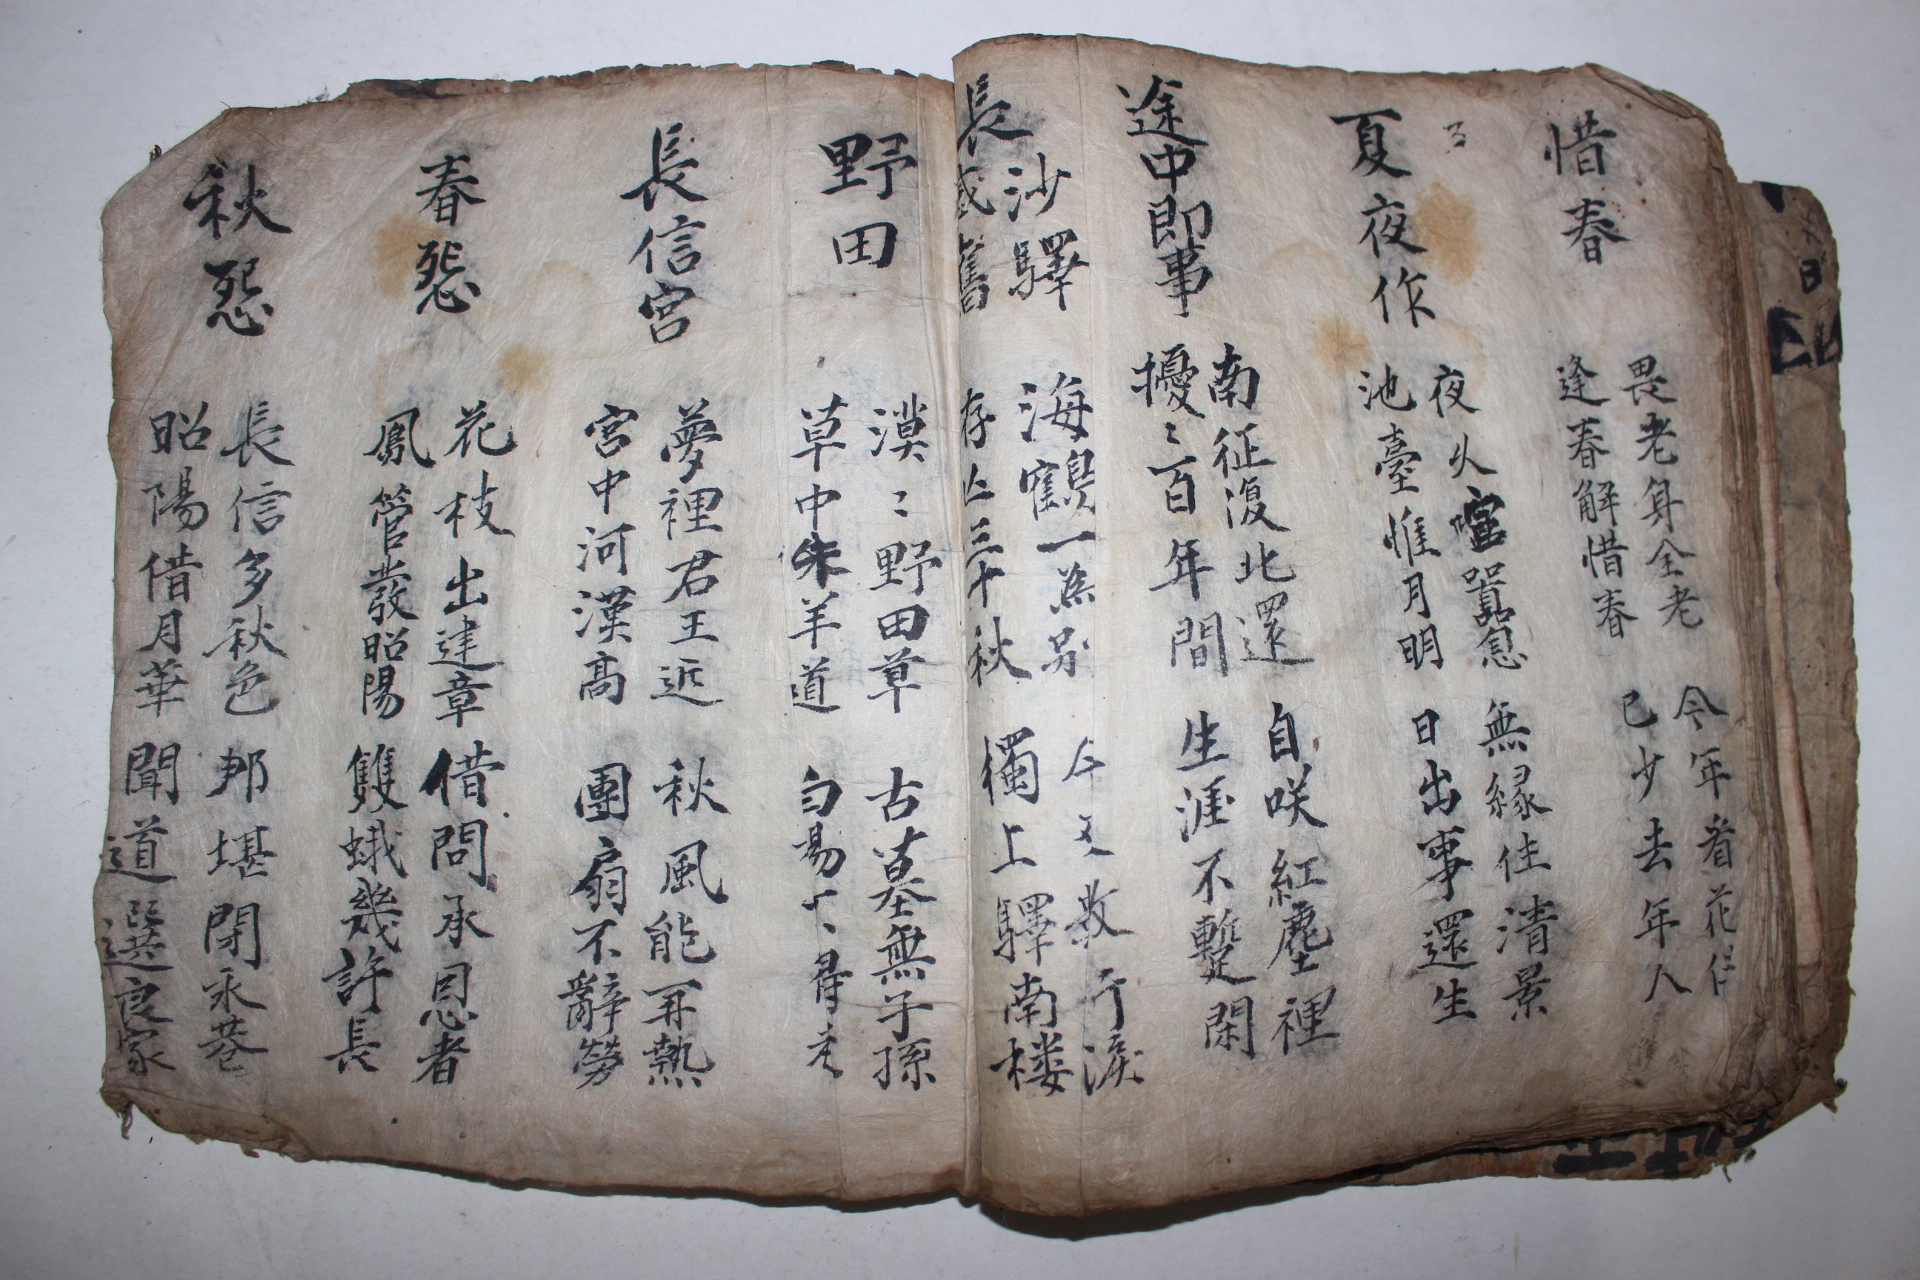 惜春
畏老身全老 今年看花伴
逢春解惜春 已少去年人
夏夜作
夜久喧囂息 無緣住清景
池臺惟月明 日出事還生
途中即事
南征復北還 自咲紅塵裡
擾〻百年間 生涯不蹔閑
長沙驛
感舊
海鶴一為別 今又數行淚
存亾三十秋 獨上驛南楼
野田
漠〻野田草 古墓無子孫
草中朱羊道 白易
長信宮
夢裡君王近 秋風能再熱
宮中河漢高 團扇不辭勞
春怨
花枝出建章 借問承恩者
鳳管發昭陽 雙蛾幾許長
秋怨
長信多秋色 那堪閉永巷
昭陽借月華 聞道選良家